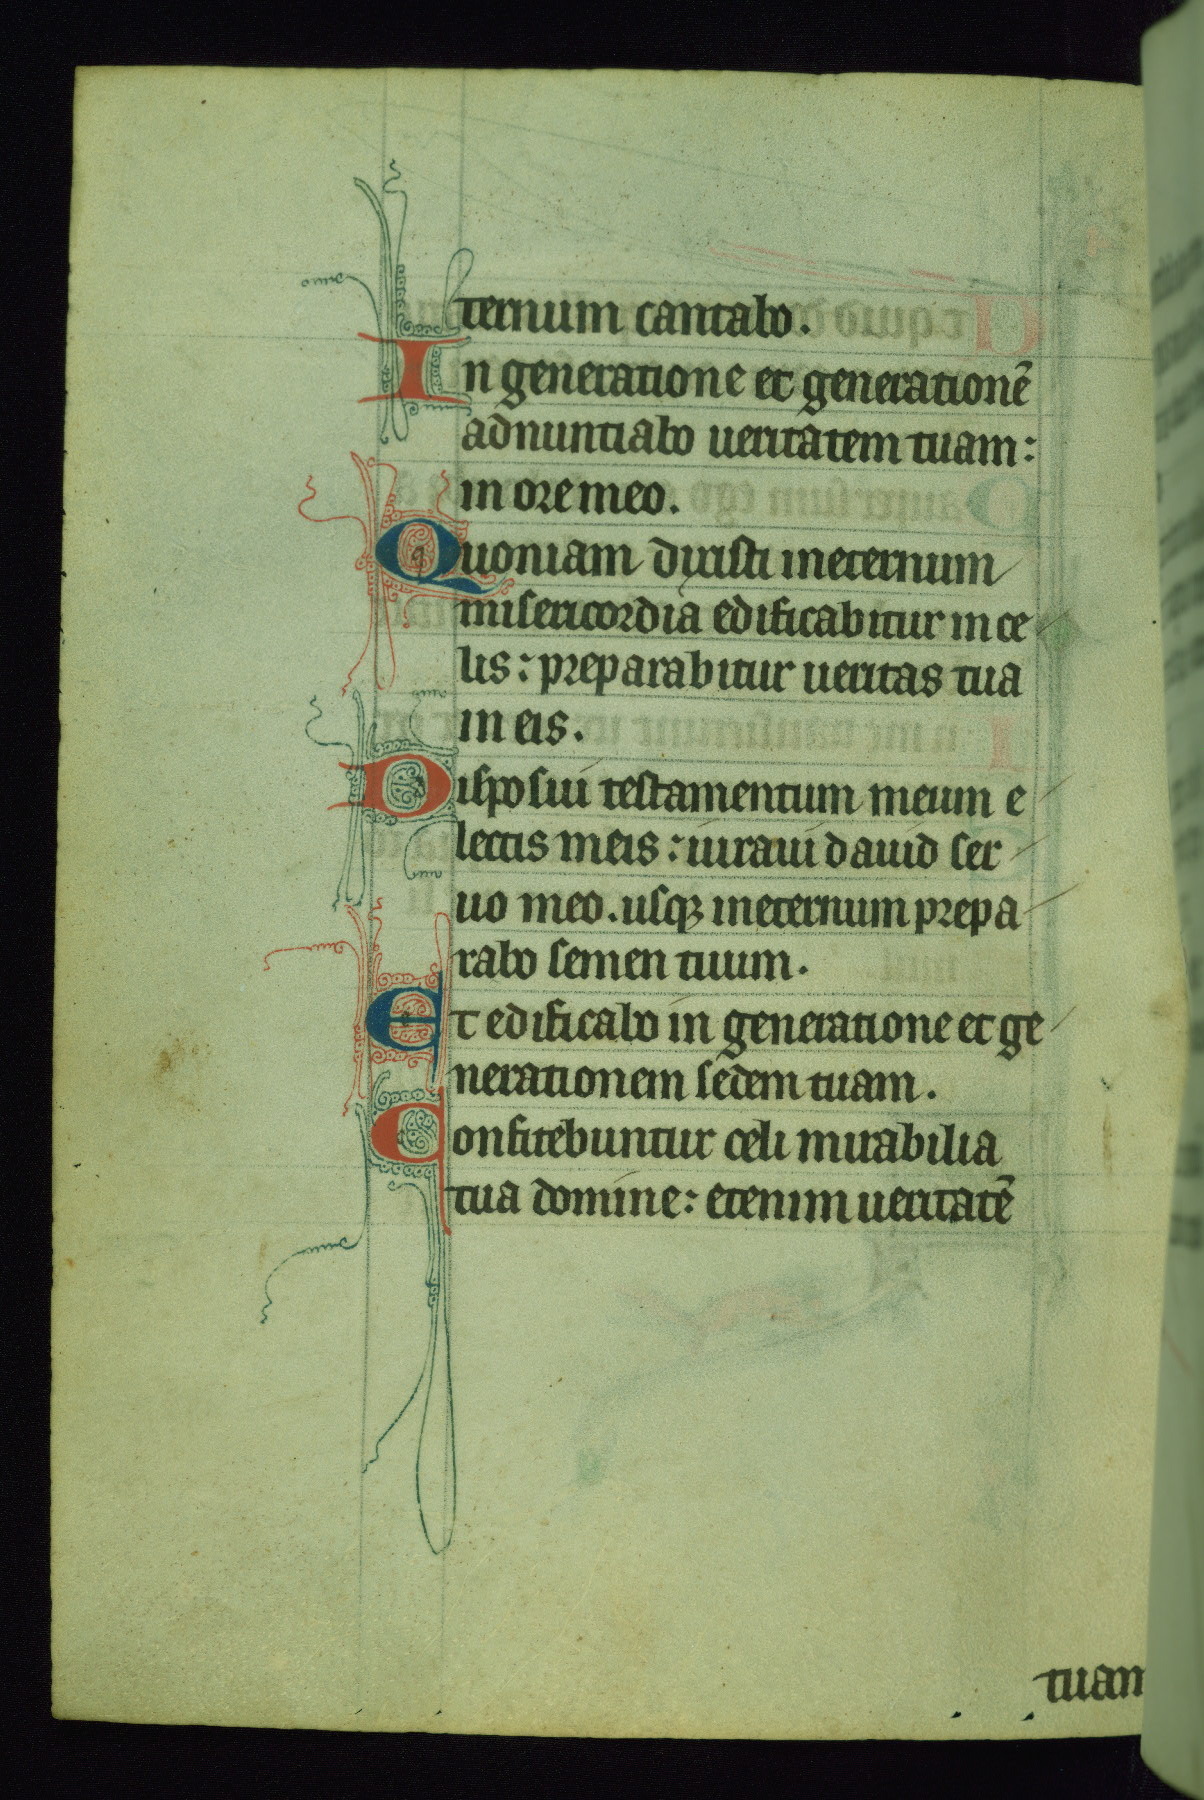 ternum cantabo.
In generatione et generationē
adnuntiabo ueritatem tuam:
in ore meo.
Quoniam dixisti ineternum
misericordia edificabitur in ce
lis: preparabitur ueritas tua
in eis.
Disposui testamentum meum e
lectis meis: iuraui dauid ser
uo meo. usq; ineternum prepa
rabo semen tuum.
Et edificabo in generatione et ge
nerationem sedem tuam.
Confitebuntur celi mirabilia
tua domine: etenim ueritatē
tuam